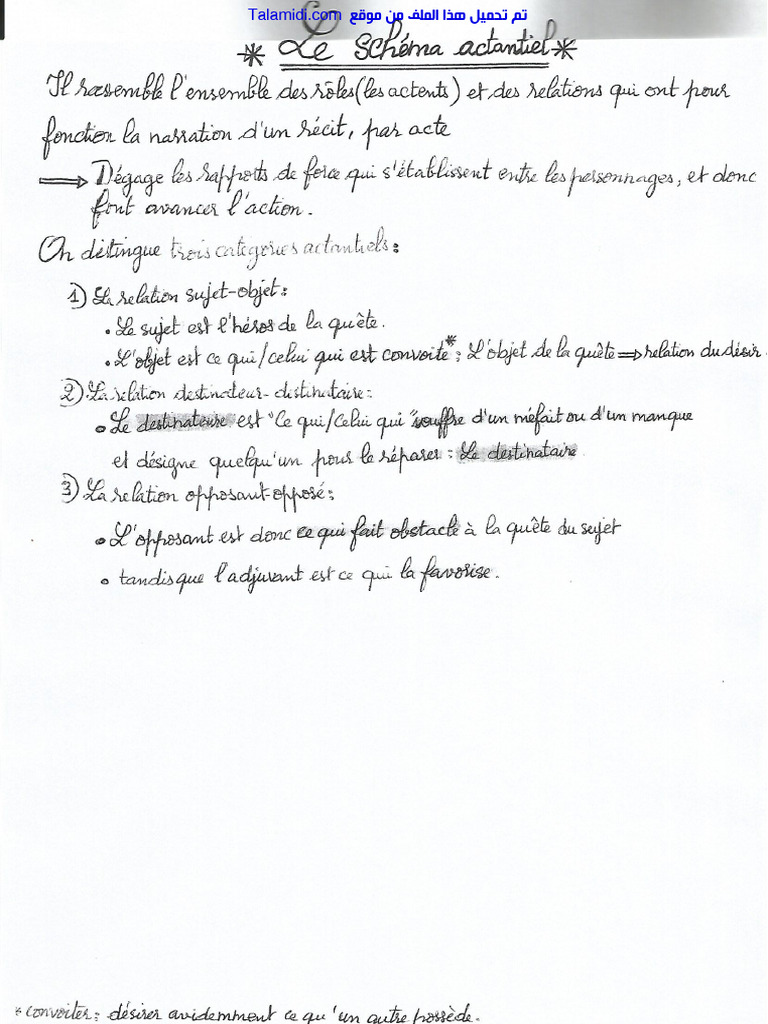 تم تحميل هذا الملف من موقع Talamidi.com
* Le schéma actantiel *
Il rassemble l'ensemble des rôles (les actents) et des relations qui ont pour
fonction la narration d'un récit, par acte
⟹ Dégage les rapports de force qui s'établissent entre les personnages, et donc
font avancer l'action.
On distingue trois catégories actantiels :
1) La relation sujet-objet :
• Le sujet est l'héros de la quête.
• L'objet est ce qui/celui qui est convoité* : L'objet de la quête ⟹ relation du désir.
2) La relation destinateur-distinataire :
• Le destinateure est "Ce qui/Celui qui" souffre d'un méfait ou d'un manque
et désigne quelqu'un pour le réparer : Le destinataire
3) La relation opposant-opposé :
• L'opposant est donc ce qui fait obstacle à la quête du sujet
• tandis que l'adjuvant est ce qui la favorise.
* convoiter : désirer avidemment ce qu'un autre possède.